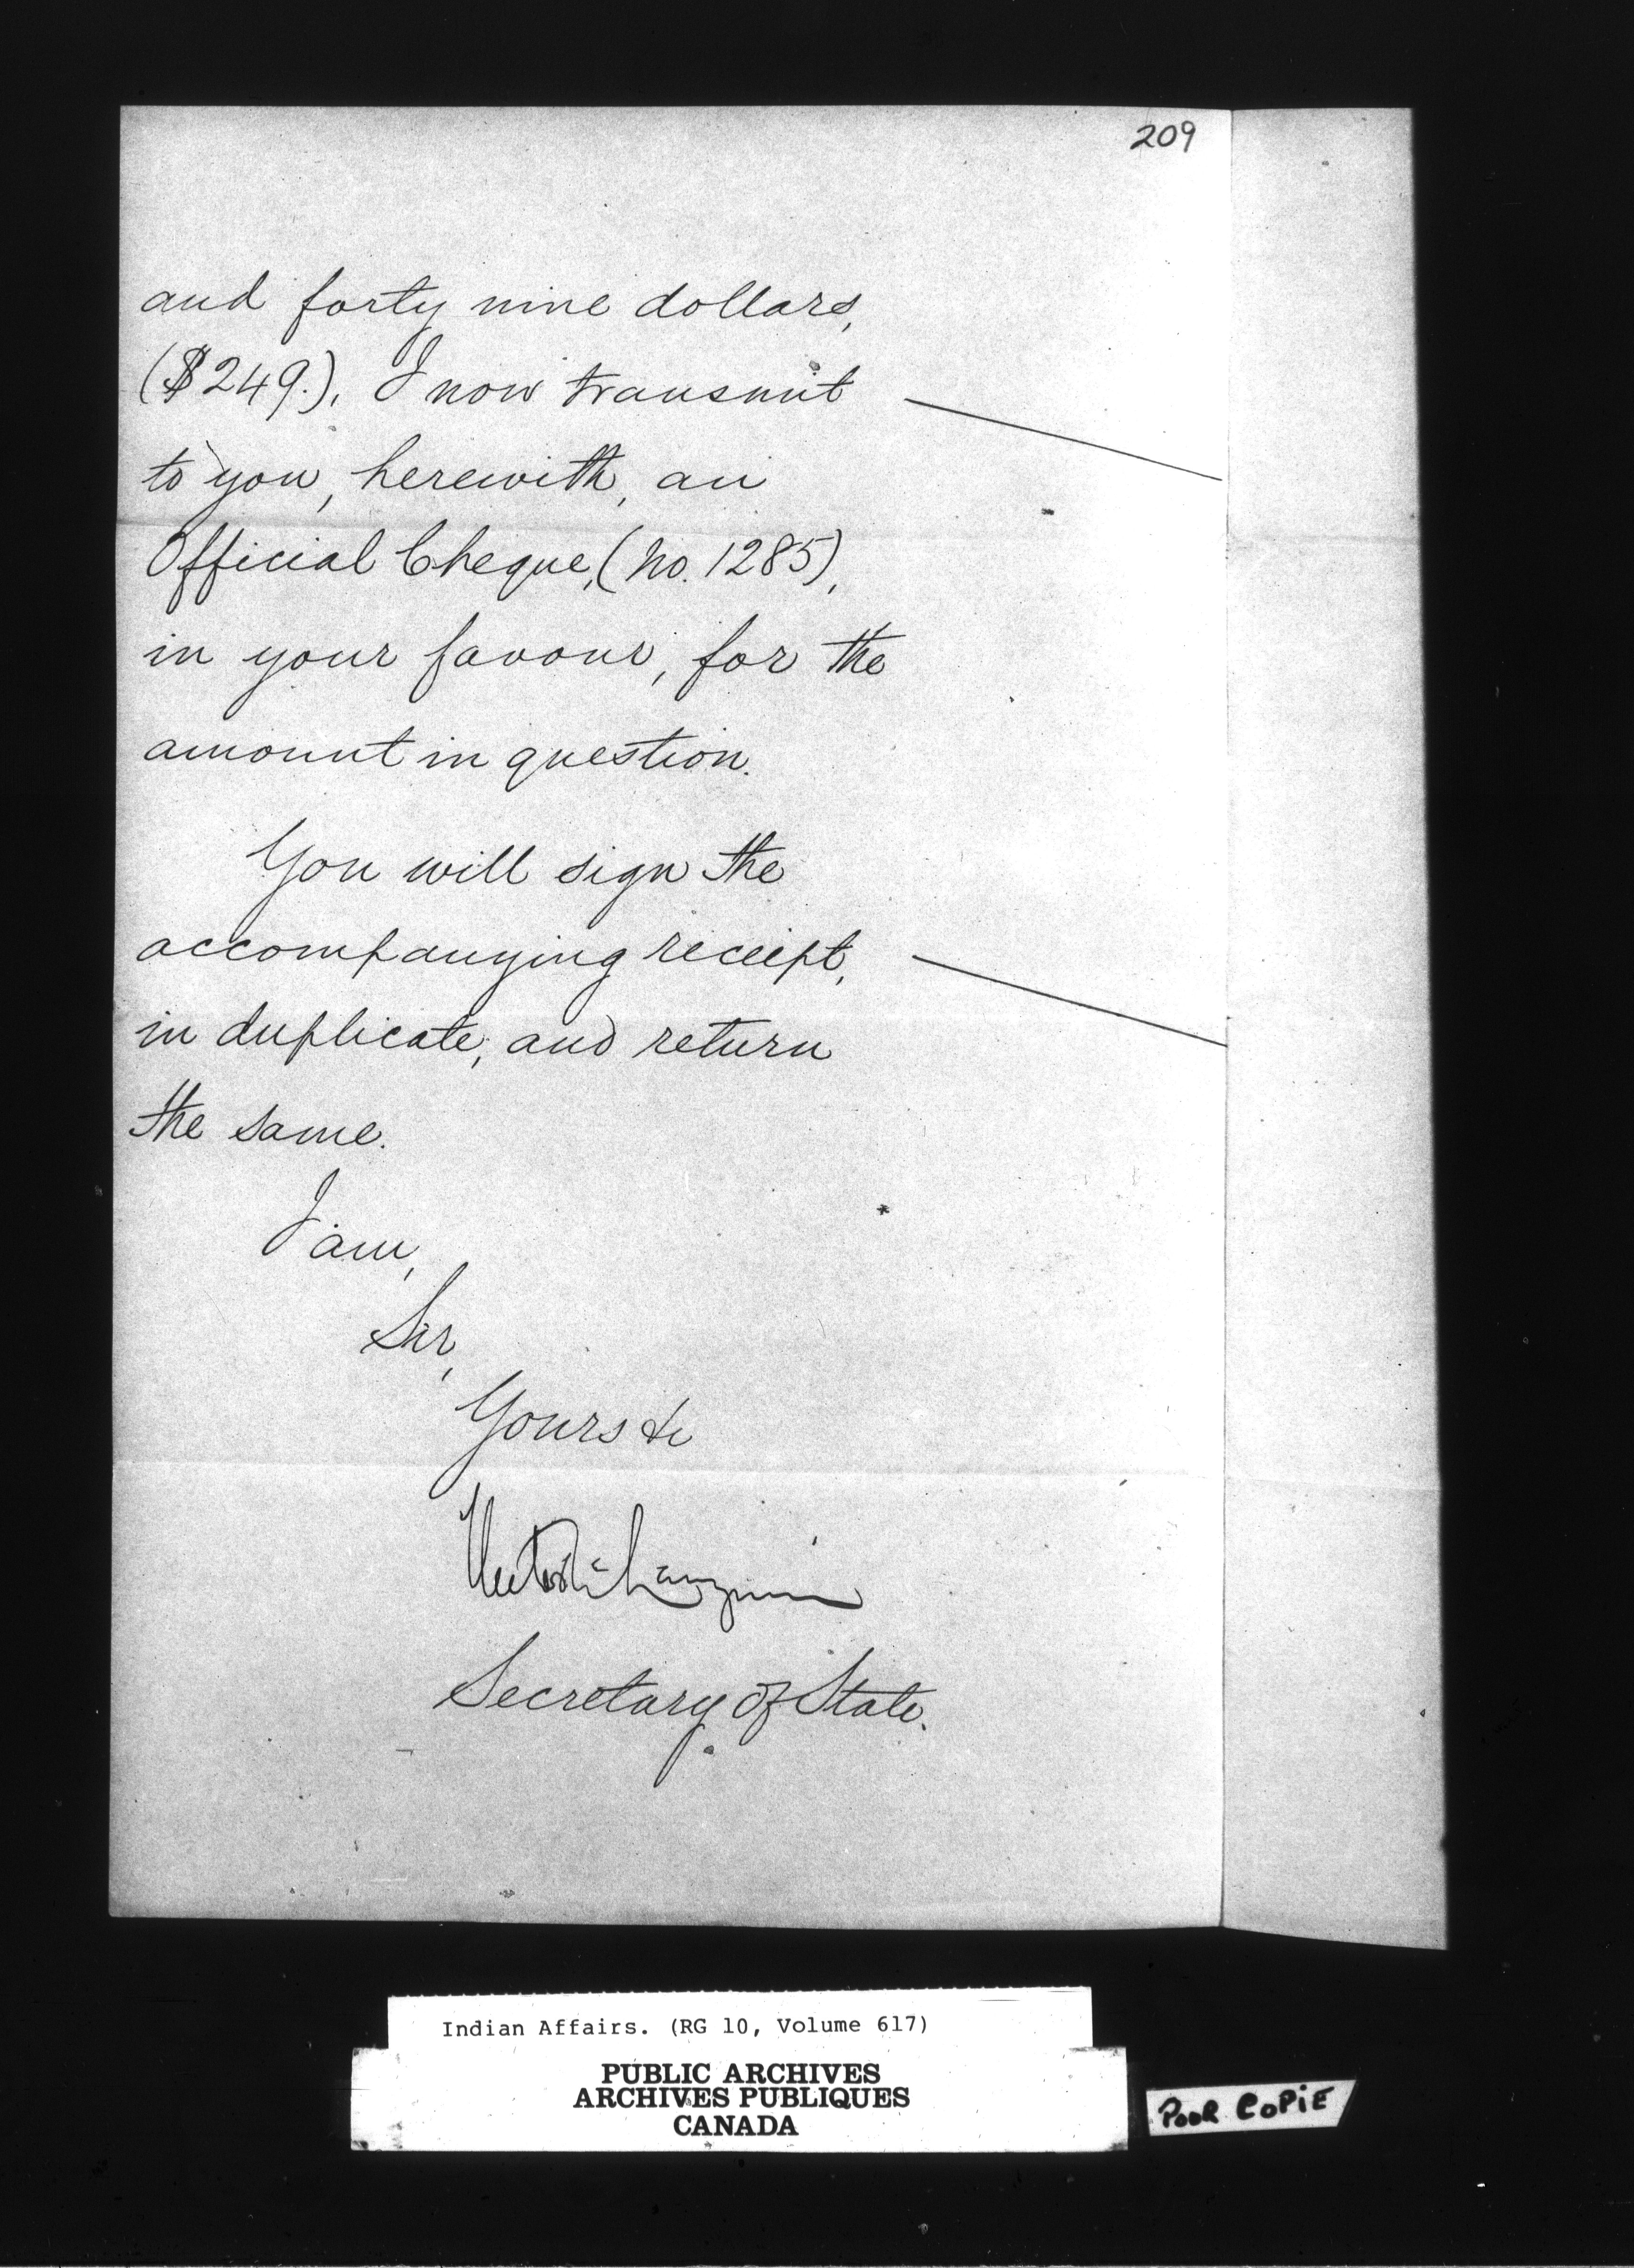 209
and forty nine dollars,
($249.), I now transmit
to you, herewith, an
Official Cheque, (No. 1285),
in your favour, for the
amount in question.
You will sign the
accompanying receipt,
in duplicate, and return
the same.
I am,
Sir,
Yours &c
Hector L. Langevin
Secretary of State.
Indian Affairs. (RG 10, Volume 617)
PUBLIC ARCHIVES
ARCHIVES PUBLIQUES
CANADA
POOR COPiE